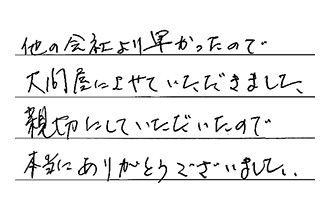 他の会社より早かったので
大問屋にさせていただきました、
親切にしていただいたので
本当にありがとうございました、.